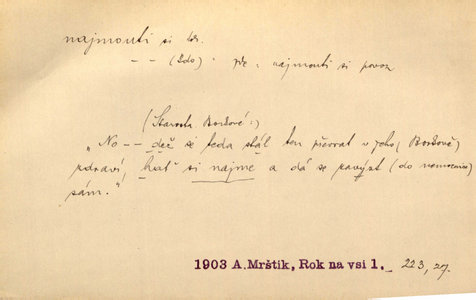 najmouti si co.
– – (kdo) · př. : najmouti si povoz
(Starosta Boršové:)
„No – – dež se teda stál ten převrat v jeho (Boršově)
zdraví, hať si najme a dá se zavýzt (do nemocnice)
sám.“
1903 A. Mrštík, Rok na vsi 1. 223, 27.